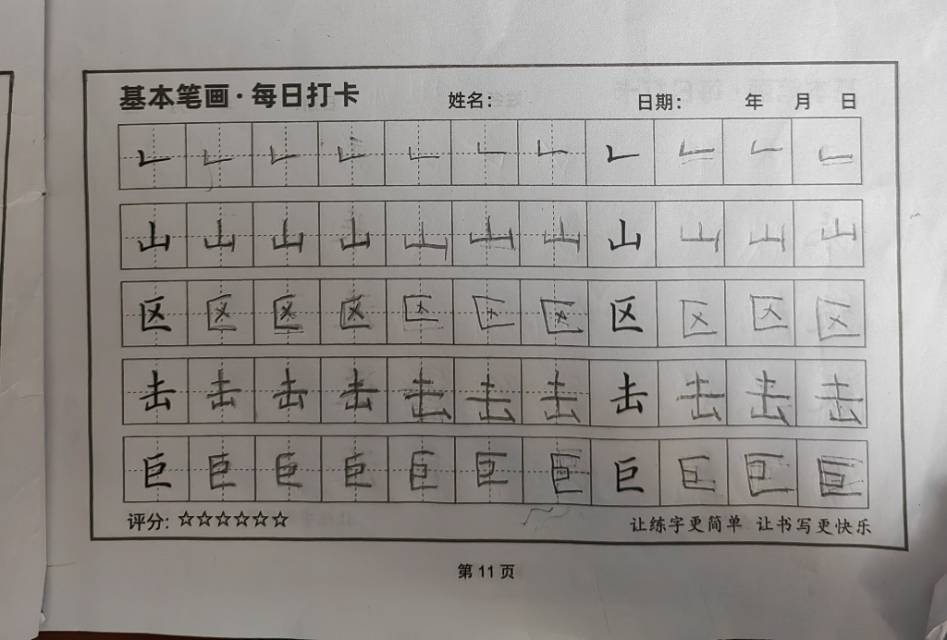 基本笔画·每日打卡 姓名： 日期： 年 月 日
𠃊 𠃊 𠃊 𠃊 𠃊 𠃊 𠃊 𠃊 𠃊 𠃊 𠃊
山 山 山 山 山 山 山 山 山 山 山
区 区 区 区 区 区 区 区 区 区 区
击 击 击 击 击 击 击 击 击 击 击
巨 巨 巨 巨 巨 巨 巨 巨 巨 巨 巨
评分: ☆☆☆☆☆☆ 让练字更简单 让书写更快乐
第 11 页